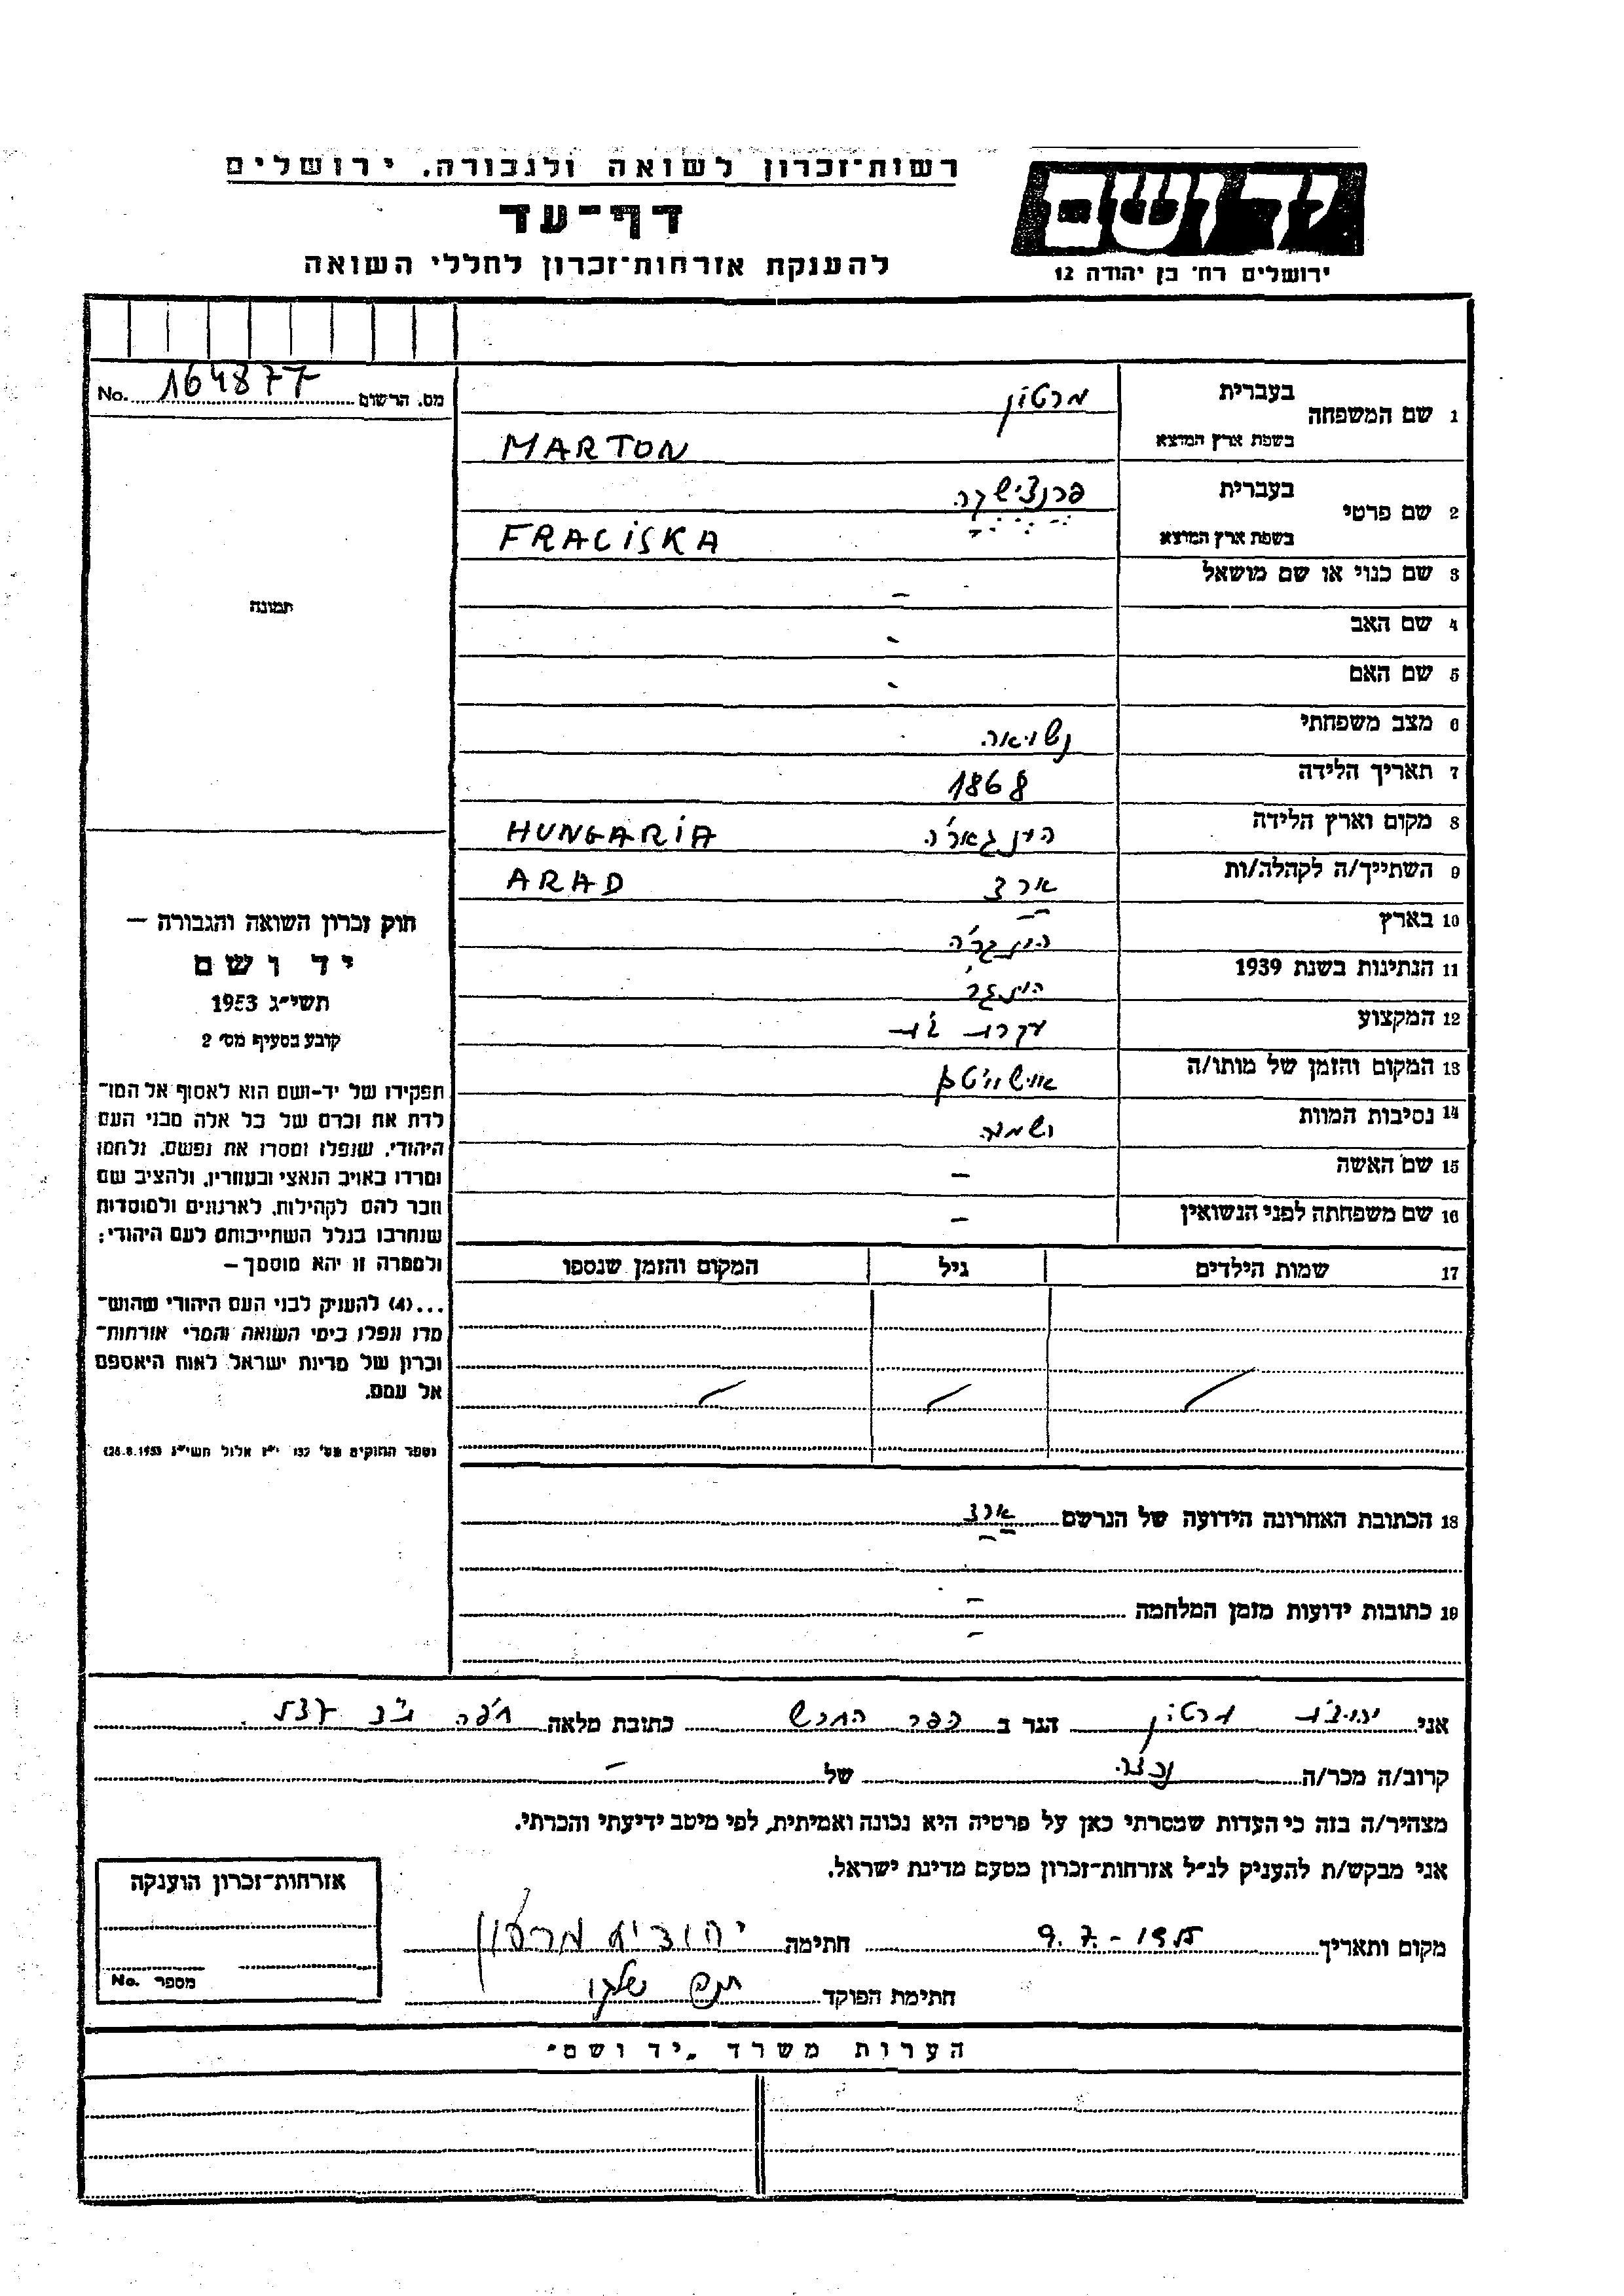 רשות־זכרון לשואה ולגבורה. ירושלים
דף־עד
להענקת אזרחות־זכרון לחללי השואה
יד ושם
ירושלים רח׳ בן יהודה 12
מס. הרשום 164877 No.
1 שם המשפחה
בעברית מרטון
בשפת ארץ המוצא MARTON
2 שם פרטי
בעברית פרנצישקה
בשפת ארץ המוצא FRACISKA
3 שם כנוי או שם מושאל –
4 שם האב -
5 שם האם -
6 מצב משפחתי נשואה
7 תאריך הלידה 1868
8 מקום וארץ הלידה הונגאריה HUNGARIA
9 השתייך/ה לקהלה/ות ארד ARAD
10 בארץ הונגריה
11 הנתינות בשנת 1939 הונגרי
12 המקצוע עקרת בית
13 המקום והזמן של מותו/ה אושוויטם
14 נסיבות המוות
15 שם האשה –
16 שם משפחתה לפני הנשואין –
17 שמות הילדים גיל המקום והזמן שנספו
תמונה
חוק זכרון השואה והגבורה –
יד ושם
תשי״ג 1953
קובע בסעיף מס׳ 2
תפקידו של יד-ושם הוא לאסוף אל המו־
לדת את זכרם של כל אלה מבני העם
היהודי, שנפלו ומסרו את נפשם, נלחמו
ומרדו באויב הנאצי ובעוזריו, ולהציב שם
וזכר להם לקהילות, לארגונים ולמוסדות
שנחרבו בגלל השתייכותם לעם היהודי;
ולמטרה זו יהא מוסמך –
...(4) להעניק לבני העם היהודי שהוש־
מדו ונפלו בימי השואה והמרי אזרחות־
זכרון של מדינת ישראל לאות היאספם
אל עמם.
(ספר החוקים מס׳ 132 י״ז אלול תשי״ג 28.8.1953)
18 הכתובת האחרונה הידועה של הנרשם ארד
19 כתובות ידועות מזמן המלחמה –
אני יהודית מרטון הגר ב כפר החרש כתובת מלאה
קרוב/ה מכר/ה נכדה של –
מצהיר/ה בזה כי העדות שמסרתי כאן על פרטיה היא נכונה ואמיתית, לפי מיטב ידיעתי והכרתי.
אני מבקש/ת להעניק לנ״ל אזרחות־זכרון מטעם מדינת ישראל.
מקום ותאריך חתימה יהודית מרטון
חתימת הפוקד
אזרחות־זכרון הוענקה
מספר No.
הערות משרד „יד ושם״